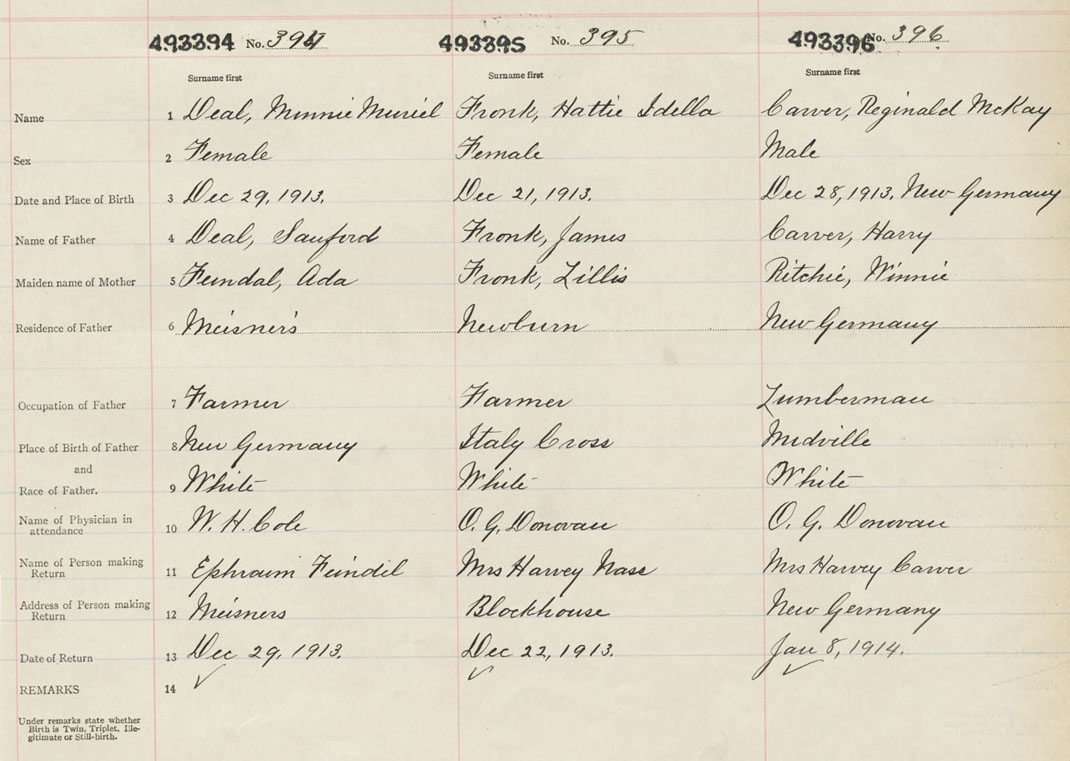 493394 No. 394 493395 No. 395 493396 No. 396
Surname first Surname first Surname first
Name 1 Deal, Minnie Muriel Fronk, Hattie Idella Carver, Reginald McKay
Sex 2 Female Female Male
Date and Place of Birth 3 Dec 29, 1913. Dec 21, 1913. Dec 28, 1913. New Germany
Name of Father 4 Deal, Sanford Fronk, James Carver, Harry
Maiden name of Mother 5 Feindal, Ada Fronk, Lillis Ritchie, Winnie
Residence of Father 6 Meisner's Newburn New Germany
Occupation of Father 7 Farmer Farmer Lumberman
Place of Birth of Father 8 New Germany Italy Cross Midville
and
Race of Father. 9 White White White
Name of Physician in
attendance 10 W. H. Cole O. G. Donovan O. G. Donovan
Name of Person making
Return 11 Ephraim Feindel Mrs Harvey Nass Mrs Harvey Carver
Address of Person making
Return 12 Meisners Blockhouse New Germany
Date of Return 13 Dec 29, 1913. Dec 22, 1913. Jan 8, 1914.
REMARKS 14
Under remarks state whether
Birth is Twin, Triplet, Ille-
gitimate or Still-birth.